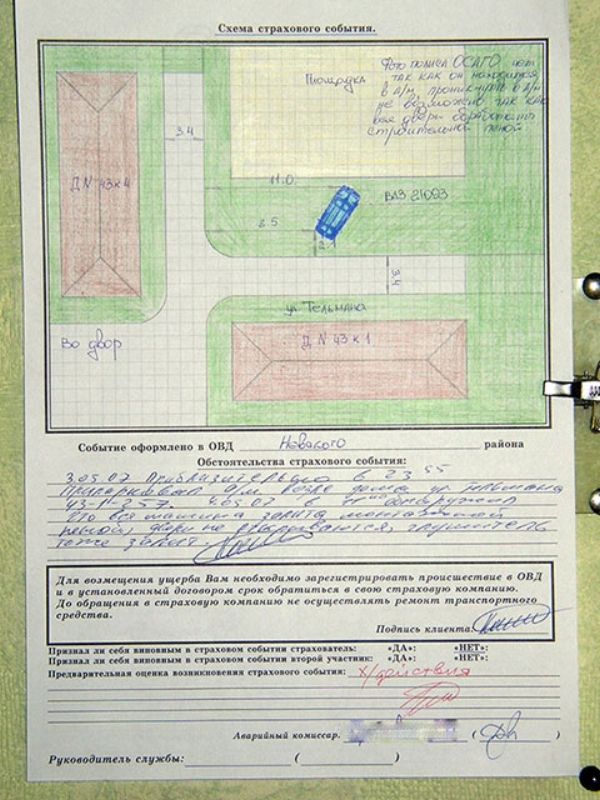 Схема страхового события.
Фото полиса ОСАГО нет
так как он находится
в а/м, проникнуть в а/м
не возможно так как
все двери обработаны
строительной пеной
Площадка
3.4
Д N 43 к 4
11.0
ВАЗ 21093
6.5
2.1
3.4
ул Тельмана
Д N 43 к 1
Во двор
Событие оформлено в ОВД Невского района
Обстоятельства страхового события:
3.05.07 Приблизительно в 23 55
Припарковал а/м возле дома ул. Тельмана
4.05.07 в обнаружил
что вся машина залита монтажной
пеной, двери не открываются, глушитель
тоже забит.
Для возмещения ущерба Вам необходимо зарегистрировать происшествие в ОВД
и в установленный договором срок обратиться в свою страховую компанию.
До обращения в страховую компанию не осуществлять ремонт транспортного
средства.
Подпись клиента:
Признал ли себя виновным в страховом событии страхователь: «ДА»: «НЕТ»:
Признал ли себя виновным в страховом событии второй участник: «ДА»: «НЕТ»:
Предварительная оценка возникновения страхового события: х/действия
Аварийный комиссар. ( )
Руководитель службы: ( )